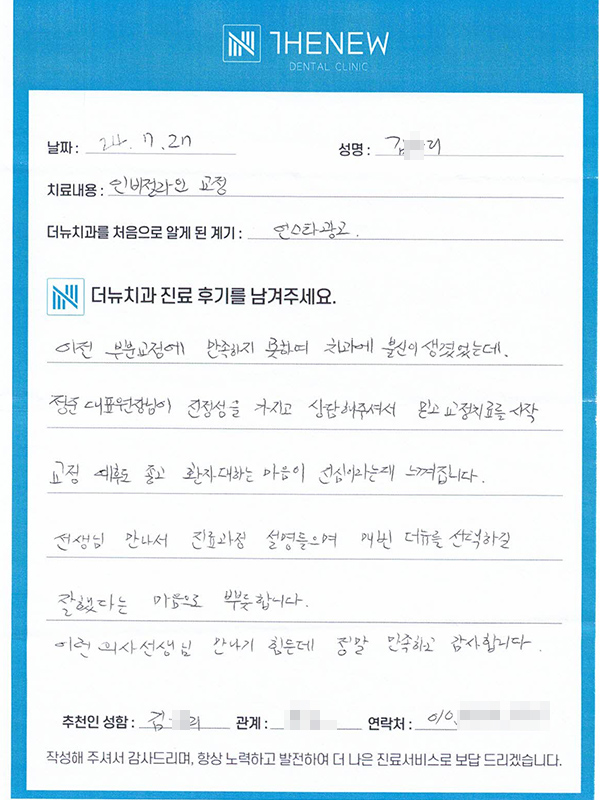 THENEW
DENTAL CLINIC
날짜 : 24. 7. 27 성명 : 김 리
치료내용 : 인비절라인 교정
더뉴치과를 처음으로 알게 된 계기 : 인스타광고.
더뉴치과 진료 후기를 남겨주세요.
이전 부분교정에 만족하지 못하여 치과에 불신이 생겼었는데.
정준 대표원장님이 진정성을 가지고 상담해주셔서 믿고 교정치료를 시작
교정 예후도 좋고 환자대하는 마음이 진심이라는게 느껴집니다.
선생님 만나서 진료과정 설명들으며 매번 더뉴를 선택하길
잘했다는 마음으로 뿌듯합니다.
이런 의사선생님 만나기 힘든데 정말 만족하고 감사합니다.
추천인 성함 : 김 리 관계 : 연락처 : 010.
작성해 주셔서 감사드리며, 항상 노력하고 발전하여 더 나은 진료서비스로 보답 드리겠습니다.